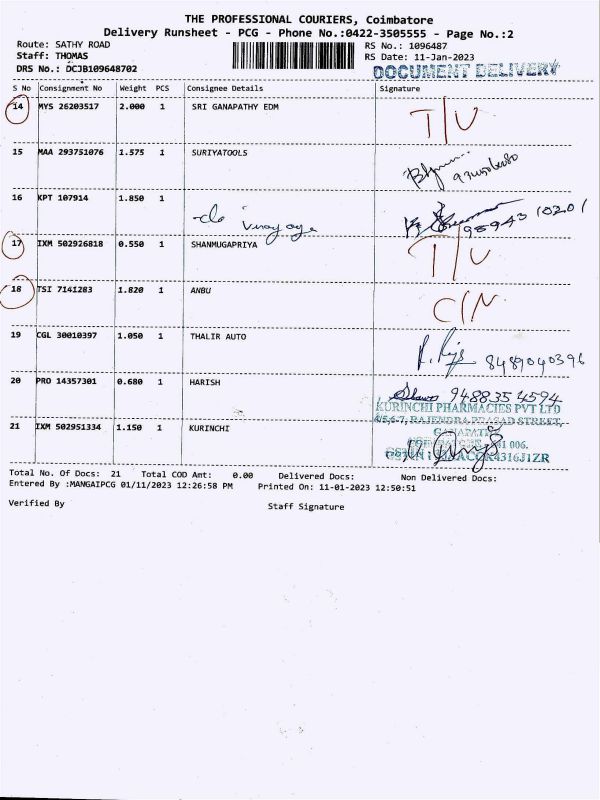 THE PROFESSIONAL COURIERS, Coimbatore
Delivery Runsheet - PCG - Phone No.:0422-3505555 - Page No.:2
Route: SATHY ROAD RS No.: 1096487
Staff: THOMAS RS Date: 11-Jan-2023
DRS No.: DCJB109648702 DOCUMENT DELIVERY
S No Consignment No Weight PCS Consignee Details Signature
14 MYS 26203517 2.000 1 SRI GANAPATHY EDM T/U
15 MAA 293751076 1.575 1 SURIYATOOLS
16 KPT 107914 1.850 1
17 IXM 502926818 0.550 1 SHANMUGAPRIYA T/U
18 TSI 7141283 1.820 1 ANBU C/N
19 CGL 30010397 1.050 1 THALIR AUTO 8489040396
20 PRO 14357301 0.680 1 HARISH 9488354594
KURINCHI PHARMACIES PVT LTD
4/5,6-7, RAJENDRA PRASAD STREET,
21 IXM 502951334 1.150 1 KURINCHI
Total No. Of Docs: 21 Total COD Amt: 0.00 Delivered Docs: Non Delivered Docs:
Entered By :MANGAIPCG 01/11/2023 12:26:58 PM Printed On: 11-01-2023 12:50:51
Verified By Staff Signature